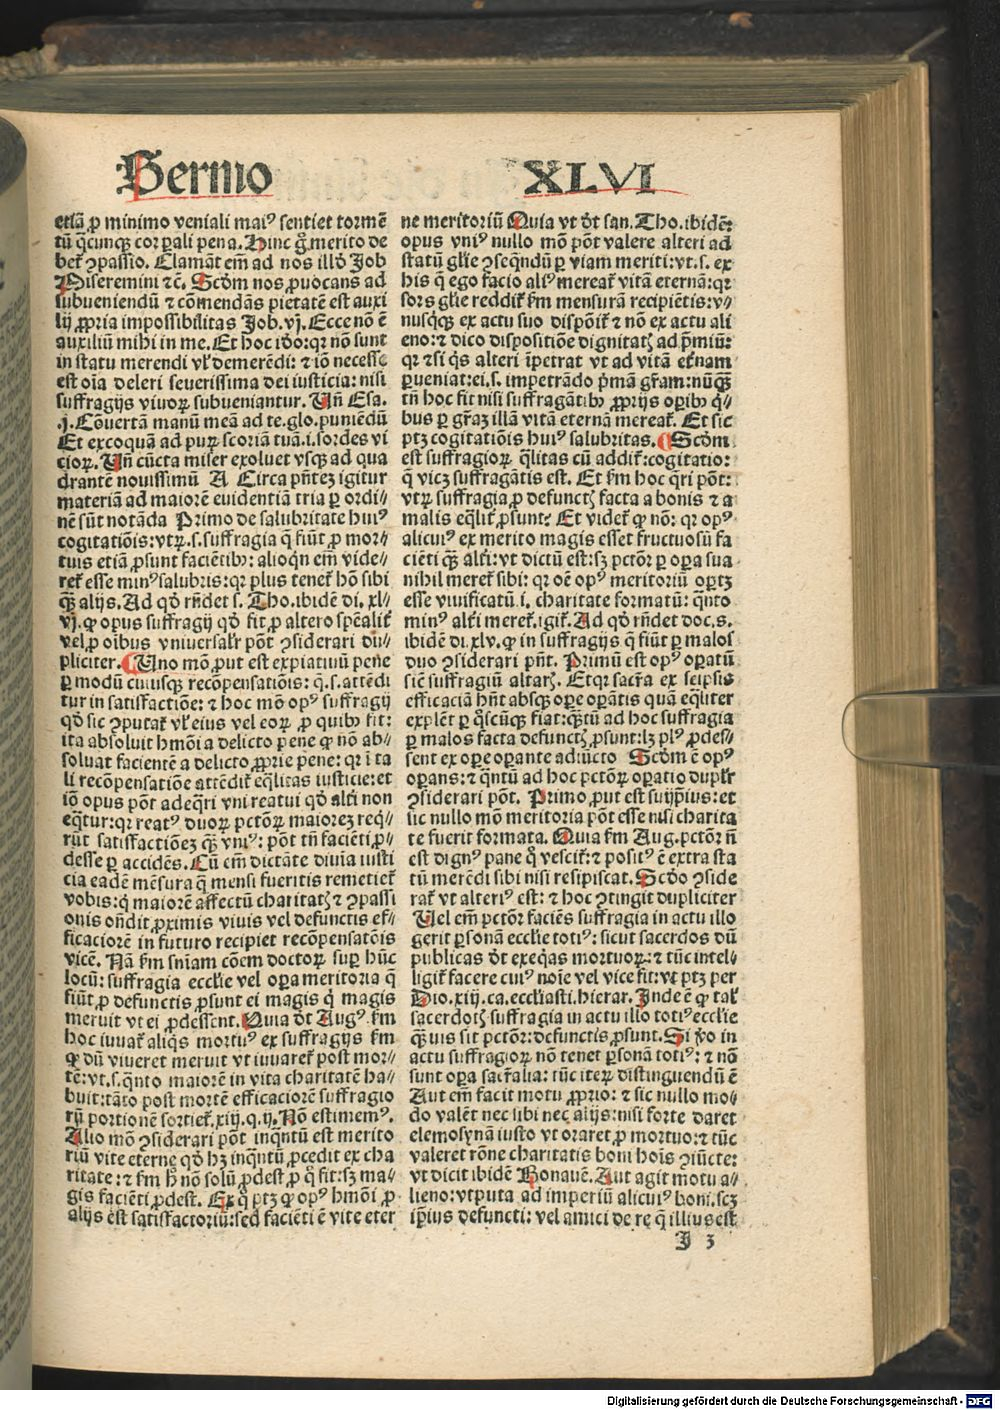 Sermo XLVI
etiã ꝑ minimo veniali maiꝰ sentiet tormẽ
tũ q̃cunqꝫ corꝑali pena. Hinc g̊ merito de
bet ꝯpassio. Clamãt em̃ ad nos illđ Job
Miseremini ⁊c̃. Scđm nos ꝓuocans ad
subueniendũ ⁊ cõmendãs pietatẽ est auxi
lij ꝓpria impossibilitas Job. vj. Ecce nõ ẽ
auxiliũ mihi in me. Et hoc iđo: qꝛ nõ sunt
in statu merendi vl̓ demerẽdi: ⁊ iõ necesse
est oĩa deleri seuerissima dei iusticia: nisi
suffragijs viuoꝝ subueniantur. Uñ Esa.
.j. Cõuertã manũ meã ad te .glo. puniẽdũ
Et excoquã ad puꝝ scoriã tuã .i. sordes vi
cioꝝ. Uñ cũcta miser exoluet vsqꝫ ad qua
drantẽ nouissimũ A Circa pñtez igitur
materiã ad maiorẽ euidentiã tria ꝑ ordi⸗
nẽ sũt notãda Primo de salubritate huiꝰ
cogitatiõis: vtꝝ .s. suffragia q̃ fiũt ꝓ mor⸗
tuis etiã ꝓsunt faciẽtibꝰ: alioqñ em̃ vide⸗
ret̃ esse minꝰ salubris: qꝛ plus tenet̃ hõ sibi
q̃ꝫ alijs. Ad qđ rñdet s. Tho. ibidẽ di. xl⸗
vj. ꝙ opus suffragij qđ fit ꝓ altero spẽalit̃
vel ꝓ oĩbus vniuersalr̃ põt ꝯsiderari du⸗
pliciter. Uno mõ ꝓut est expiatiuũ pene
ꝑ modũ cuiusqꝫ recõpensatiõis: q̃ .s. attẽdi
tur in satisfactiõe: ⁊ hoc mõ opꝰ suffragij
qđ sic ꝯputat̃ vl̓ eius vel eoꝝ ꝓ quibꝰ fit:
ita absoluit hmõi a delicto ꝑ ene ꝙ nõ ab⸗
soluat facientẽ a delicto ꝓprie pene: qꝛ ĩ ta
li recõpensatiõe attẽdit̃ eq̃litas iusticie: et
iõ opus põt adeq̃ri vni reatui qđ alt̓i non
eq̃tur: qꝛ reatꝰ duoꝝ pctõꝝ maiorez req̃⸗
rũt satisfactiõez q̃ꝫ vniꝰ: põt tñ faciẽti ꝓ⸗
desse ꝑ accidẽs. Cũ em̃ dictãte diuĩa iusti
cia eadẽ mẽsura q̃ mensi fueritis remetiet̃
vobis: q̓ maiorẽ affectũ charitatꝭ ⁊ ꝯpassi
onis oñdit ꝓximis viuis vel defunctis ef⸗
ficaciorẽ in futuro recipiet recõpensatõis
vicẽ. Nã ẜm sñiam cõem doctoꝝ suꝑ hũc
locũ: suffragia eccl̓ie vel oꝑa meritoria q̃
fiũt ꝓ defunctis ꝓsunt ei magis q̓ magis
meruit vt ei ꝓdessent. Quia đt Augꝰ. ẜm
hoc iuuat̃ aliqs mortuꝰ ex suffragijs ẜm
ꝙ dũ viueret meruit vt iuuaret̃ post mor⸗
tẽ: vt .s. q̃nto maiorẽ in vita charitatẽ ha⸗
buit: tãto post mortẽ efficaciorẽ suffragio
rũ portionẽ sortiet̃. xiij. q. ij. Nõ estimemꝰ.
Alio mõ ꝯsiderari põt inq̃ntũ est merito
riũ vite eterne qđ hꝫ inq̃ntũ ꝓcedit ex cha
ritate: ⁊ ẜm h̓ nõ solũ ꝓdest ꝓ q̊ fit: sꝫ ma⸗
gis faciẽti ꝓdest. Ex q̊ ptꝫ ꝙ opꝰ hmõi ꝓ
alijs est satisfactoriũ: sed faciẽti ẽ vite eter
ne meritoriũ Quia vt đt san. Tho. ibidẽ:
opus vniꝰ nullo mõ põt valere alteri ad
statũ gl̓ie ꝯseq̃ndũ ꝑ viam meriti: vt .s. ex
his q̃ ego facio aliꝰ mereat̃ vitã eternã: qꝛ
sors gl̓ie reddit̃ ẜm mensurã recipiẽtis: v⸗
nusqsqꝫ ex actu suo dispõit̃ ⁊ nõ ex actu ali
eno: ⁊ dico dispositiõe dignitatꝭ ad p̃miũ:
qꝛ ⁊ si q̓s alteri ĩpetrat vt ad vitã et̓nam
ꝑueniat: ei .s. impetrãdo p̓mã gr̃am: nũq̃ꝫ
tñ hoc fit nisi suffragãtibꝰ ꝓprijs oꝑibꝰ q̓⸗
bus ꝑ gr̃az illã vitã eternã mereat̃. Et sic
ptꝫ cogitatiõis huiꝰ salubritas. Scđm
est suffragioꝝ q̃litas cũ addit̃: cogitatio:
q̃ vicꝫ suffragãtis est. Et ẜm hoc q̃ri põt:
vtꝝ suffragia ꝓ defunctꝭ facta a bonis ⁊ a
malis eq̃lit̃ ꝓsunt? Et videt̃ ꝙ nõ: qꝛ opꝰ
alicuiꝰ ex merito magis esset fructuosũ fa
ciẽti q̃ꝫ alt̓i: vt dictũ est: sꝫ pctõr ꝑ oꝑa sua
nihil meret̃ sibi: qꝛ oẽ opꝰ meritoriũ oꝑtꝫ
esse viuificatũ .i. charitate formatũ: q̃nto
minꝰ alt̓i meret̃. igit̃. Ad qđ rñdet doc. s.
ibidẽ di. xlv. ꝙ in suffragijs q̃ fiũt ꝑ malos
duo ꝯsiderari pñt. Primũ est opꝰ oꝑatũ
sic̃ suffragiũ altarꝭ. Et qꝛ sacr̃a ex seipsis
efficaciã hñt absqꝫ oꝑe oꝑantis quã eq̃liter
explẽt ꝑ q̊scũqꝫ fiat: q̃ꝫtũ ad hoc suffragia
ꝑ malos facta defunctꝭ ꝓsunt: lꝫ plꝰ ꝓdes⸗
sent ex oꝑe oꝑante adiũcto Scđm ẽ opꝰ
oꝑans: ⁊ q̃ntũ ad hoc pctõꝝ oꝑatio duplr̃
ꝯsiderari põt. Primo ꝓut est suijp̃ius: et
sic nullo mõ meritoria põt esse nisi charita
te fuerit formata. Quia ẜm Aug. pctõr ñ
est dignꝰ pane q̊ vescit̃: ⁊ positꝰ ẽ extra sta
tũ merẽdi sibi nisi resipiscat. Scđo ꝯside
rat̃ vt alteriꝰ est: ⁊ hoc ꝯtingit dupliciter
Uel em̃ pctõr faciẽs suffragia in actu illo
gerit ꝑsonã eccl̓ie totiꝰ: sicut sacerdos dũ
publicas đt exeq̃as mortuoꝝ: ⁊ tũc intel⸗
ligit̃ facere cuiꝰ noĩe vel vice fit: vt ptꝫ per
Dio. xiij. ca. eccl̓iasti. hierar. Inde ẽ ꝙ tal̓
sacerdotꝭ suffragia in actu illo totiꝰ eccl̓ie
q̃ꝫuis sit pctõr: defunctis ꝓsunt. Si ṽo in
actu suffragioꝝ nõ tenet ꝑsonã totiꝰ: ⁊ nõ
sunt oꝑa sacr̃alia: tũc iteꝝ distinguendũ ẽ
Aut em̃ facit motu ꝓprio: ⁊ sic nullo mo⸗
do valẽt nec sibi nec alijs: nisi forte daret
elemosynã iusto vt oraret ꝓ mortuo: ⁊ tũc
valeret rõne charitatis boni hoĩs ꝯiũcte:
vt dicit ibidẽ Bonauẽ. Aut agit motu a⸗
lieno: vtputa ad imperiũ alicuiꝰ boni. scꝫ
ip̃ius defuncti: vel amici de re q̃ illius est
J 3
Digitalisierung gefördert durch die Deutsche Forschungsgemeinschaft - DFG